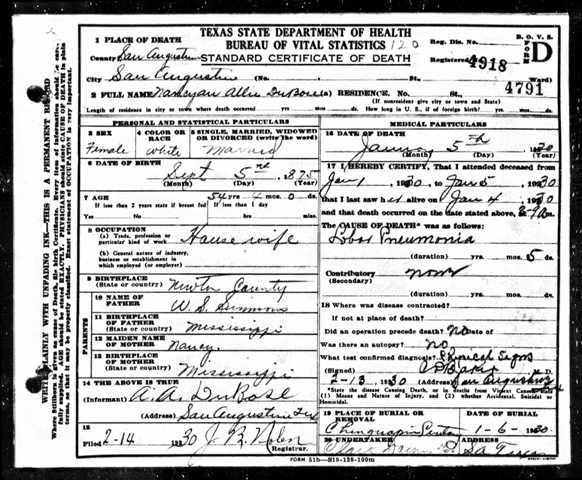 TEXAS STATE DEPARTMENT OF HEALTH
BUREAU OF VITAL STATISTICS 120
STANDARD CERTIFICATE OF DEATH
B. O. V. S.
FORM D
Reg. Dis. No.
Registered 4918
4791
1 PLACE OF DEATH
County San Augustine
City San Augustine (No. St., Ward)
2 FULL NAME Nancyan Allie DuBose (a) RESIDENCE. No. St.,
(If nonresident give city or town and State)
Length of residence in city or town where death occurred yrs. mos. ds. How long in U. S., if of foreign birth? yrs. mos. ds.
PERSONAL AND STATISTICAL PARTICULARS
3 SEX
Female
4 COLOR OR RACE
White
5 SINGLE, MARRIED, WIDOWED OR DIVORCED (write the word)
Married
6 DATE OF BIRTH
Sept 5 1875
(Month) (Day) (Year)
7 AGE 54 yrs 4 mos. 0 ds.
If less than 2 years state if breast fed If less than 1 day
Yes No hrs. min.
8 OCCUPATION
(a) Trade, profession or particular kind of work House wife
(b) General nature of industry, business or establishment in which employed (or employer)
9 BIRTHPLACE
(State or country) Newton County
PARENTS
10 NAME OF FATHER W. S. Simmons
11 BIRTHPLACE OF FATHER
(State or country) Mississippi
12 MAIDEN NAME OF MOTHER Nancy
13 BIRTHPLACE OF MOTHER
(State or country) Mississippi
14 THE ABOVE IS TRUE
(Informant) A. A. DuBose
(Address) San Augustine Tex
15
Filed 2-14 1930 J. B. Nolen
Registrar.
MEDICAL PARTICULARS
16 DATE OF DEATH
5th 1930
(Month) (Day) (Year)
17 I HEREBY CERTIFY, That I attended deceased
from Jan 1 1930 to Jan 5 1930
that I last saw her alive on Jan 4 1930
and that death occurred on the date stated above,
The CAUSE OF DEATH was as follows:
Lobar Pneumonia
(duration) yrs. mos. 5 ds.
Contributory none
(Secondary)
(duration) yrs. mos. ds.
18 Where was disease contracted?
If not at place of death?
Did an operation precede death? No Date of
Was there an autopsy? no
What test confirmed diagnosis? Physical Signs
(Signed) M. D.
2-13 1930 (Address) San Augustine
*State the Disease Causing Death, or in deaths from Violent Causes, state (1) Means and Nature of Injury, and (2) whether Accidental, Suicidal or Homicidal.
19 PLACE OF BURIAL OR REMOVAL
Chinquapin
DATE OF BURIAL
1-6-1930
20 UNDERTAKER
(Address)
FORM 51b
WRITE PLAINLY WITH UNFADING INK—THIS IS A PERMANENT RECORD